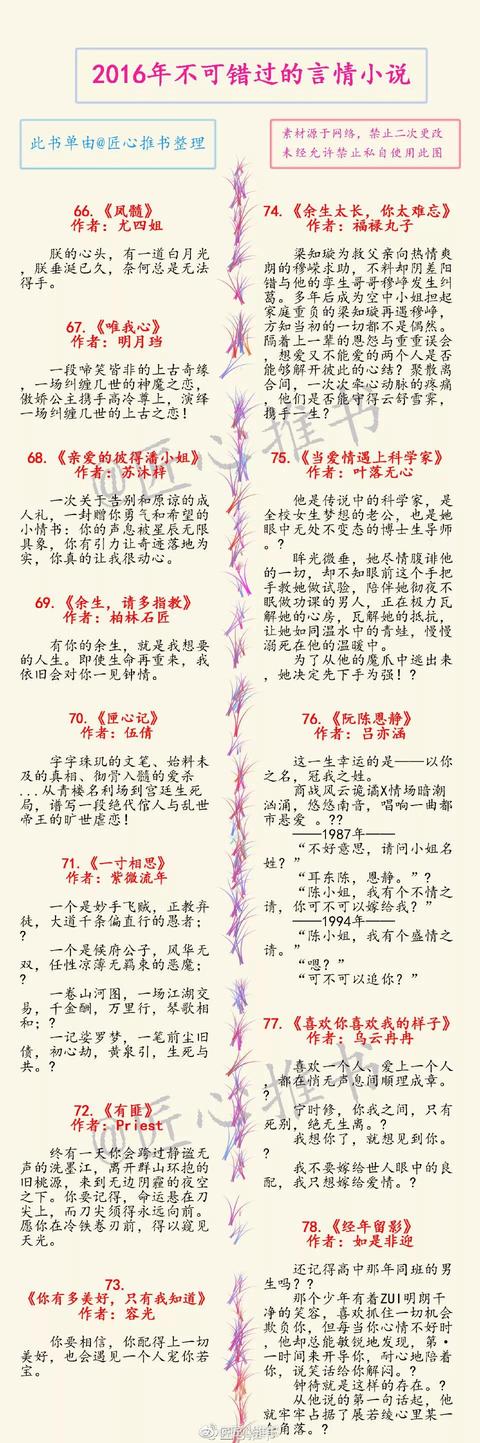 2016年不可错过的言情小说
此书单由@匠心推书整理
素材源于网络，禁止二次更改
未经允许禁止私自使用此图
66.《凤髓》
作者：尤四姐
朕的心头，有一道白月光
，朕垂涎已久，奈何总是无法
得手。
67.《唯我心》
作者：明月珰
一段啼笑皆非的上古奇缘
，一场纠缠几世的神魔之恋，
傲娇公主携手高冷尊上，演绎
一场纠缠几世的上古之恋！
68.《亲爱的彼得潘小姐》
作者：苏沐梓
一次关于告别和原谅的成
人礼，一封赠你勇气和希望的
小情书：你的声息被星辰无限
具象，你有引力让奇迹落地为
实，你真的让我很动心。
69.《余生，请多指教》
作者：柏林石匠
有你的余生，就是我想要
的人生。即使生命再重来，我
依旧会对你一见钟情。
70.《匣心记》
作者：伍倩
字字珠玑的文笔、始料未
及的真相、彻骨入髓的爱杀
...从青楼名利场到宫廷生死
局，谱写一段绝代倌人与乱世
帝王的旷世虐恋！
71.《一寸相思》
作者：紫微流年
一个是妙手飞贼，正教弃
徒，大道千条偏直行的愚者；
?
一个是候府公子，风华无
双，任性凉薄无羁束的恶魔；
?
一卷山河图，一场江湖交
易，千金酬，万里行，琴歌相
和；?
一记娑罗梦，一笔前尘旧
债，初心劫，黄泉引，生死与
共。?
72.《有匪》
作者：Priest
终有一天你会跨过静谧无
声的洗墨江，离开群山环抱的
旧桃源，来到无边阴霾的夜空
之下。你要记得，命运悬在刀
尖上，而刀尖须得永远向前。
愿你在冷铁卷刃前，得以窥见
天光。
73.
《你有多美好，只有我知道》
作者：容光
你要相信，你配得上一切
美好，也会遇见一个人宠你若
宝。
74.《余生太长，你太难忘》
作者：福禄丸子
梁知璇为救父亲向热情爽
朗的穆嵘求助，不料却阴差阳
错与他的孪生哥哥穆峥发生纠
葛。多年后成为空中小姐担起
家庭重负的梁知璇再遇穆峥，
方知当初的一切都不是偶然。
隔着上一辈的恩怨与重重误会
，想爱又不能爱的两个人是否
能够解开彼此的心结？聚散离
合间，一次次牵心动脉的疼痛
，他们是否能守得云舒雪雾，
携手一生？
75.《当爱情遇上科学家》
作者：叶落无心
他是传说中的科学家，是
全校女生梦想的老公，也是她
眼中无处不变态的博士生导师
。?
眸光微垂，她尽情腹诽他
的一切，却不知眼前这个手把
手教她做试验，陪伴她彻夜不
眠做功课的男人，正在极力瓦
解她的心房，瓦解她的抵抗，
让她如同温水中的青蛙，慢慢
溺死在他的温暖中。
为了从他的魔爪中逃出来
，她决定先下手为强！?
76.《阮陈恩静》
作者：吕亦涵
这一生幸运的是——以你
之名，冠我之姓。
商战风云诡谲X情场暗潮
汹涌，悠悠南音，唱响一曲都
市悬爱 。??
——1987年——
“不好意思，请问小姐名
姓？”
“耳东陈，恩静。”?
“陈小姐，我有个不情之
请，你可不可以嫁给我？”
——1994年——
“陈小姐，我有个盛情之
请。”
“嗯？”
“可不可以追你？”
77.《喜欢你喜欢我的样子》
作者：乌云冉冉
喜欢一个人、爱上一个人
，都在悄无声息间顺理成章。
?
宁时修，你我之间，只有
死别，绝无生离。?
我想你了，就想见到你。
?
我不要嫁给世人眼中的良
配，我只想嫁给爱情。?
78.《经年留影》
作者：如是非迎
还记得高中那年同班的男
生吗？?
那个少年有着ZUI明朗干
净的笑容，喜欢抓住一切机会
欺负你，但每当你心情不好时
，他却总能敏锐地发现，第·
一时间来开导你，耐心地陪着
你，说笑话给你解闷。?
钟待就是这样的存在。?
从他说的第一句话起，他
就牢牢占据了展若绫心里某一
个角落。?
@匠心推书
@匠心推书
@匠心推书